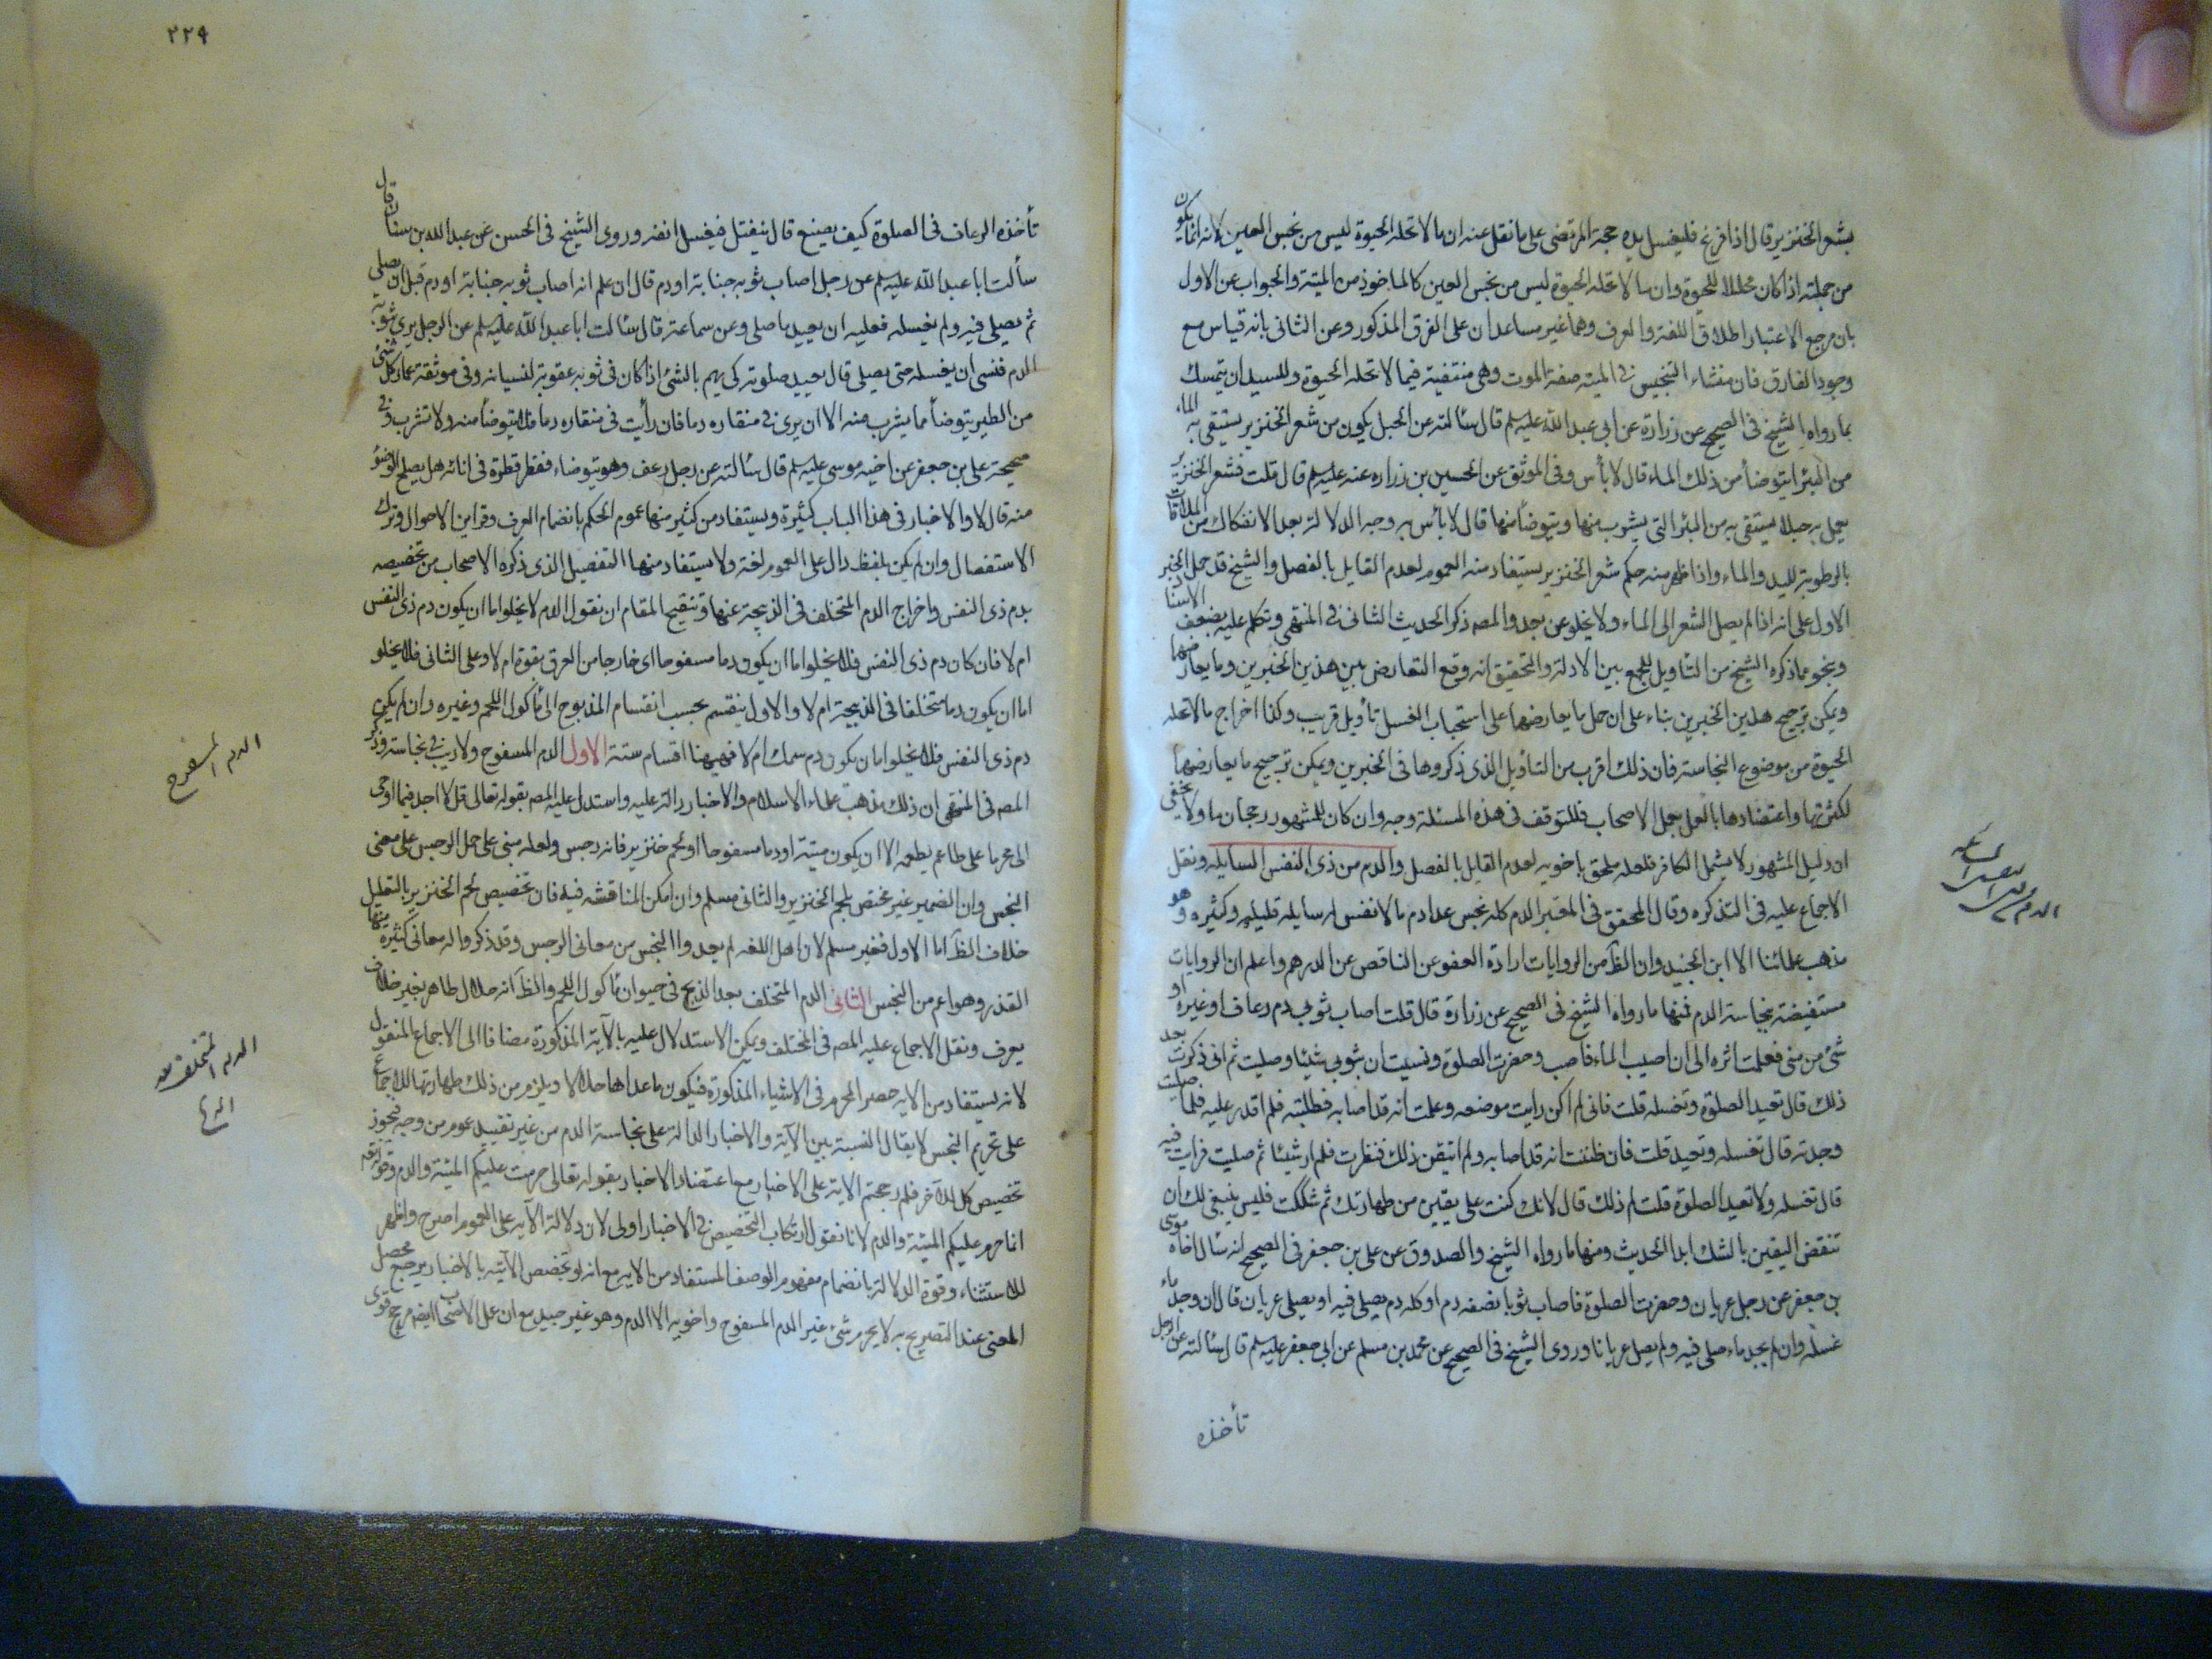 بشعر الخنزير قال اذا فرغ فليغسل يده حجة المرتضى على ما نقل عنه ان ما لا تحله الحيوة ليس من نجس العين لانه انما يكون
من جملته اذا كان محلا للحيوة وان ما لا تحله الحيوة ليس من نجس العين كالماخوذ من الميتة والجواب عن الاول
بان مرجع الاعتبار اطلاق اللغة والعرف وهما غير مساعدان على الفرق المذكور وعن الثانى بانه قياس مع
وجود الفارق فان منشاء التنجيس فى الميته صفة الموت وهى منتفية فيما لا تحله الحيوة وللسيد ان يتمسك
بما رواه الشيخ فى الصحيح عن زرارة عن ابى عبد الله عليه سلم قال سئالته عن الحبل يكون من شعر الخنزير يستقى به الماء
من البئر ايتوضأ من ذلك الماء قال لا بأس وفى الموثق عن الحسين بن زراره عنه عليه سلم قال قلت فشعر الخنزير
يعمل به حبلا يستقى به من البئر التى يشرب منها ويتوضأ منها قال لا بأس به وجه الدلالة بعد الانفكاك من الملاقات
بالرطوبة لليد والماء واذا ظهر منه حكم شعر الخنزير يستفاد منه العموم لعدم القايل بالفصل والشيخ قد حمل الخبر
الاول على انه اذا لم يصل الشعر الى الماء ولا يخلو عن بعد والمصه ذكر الحديث الثانى فى المنتهى وتكلم عليه بضعف الاسناد
وبنحو مما ذكره الشيخ من التاويل للجمع بين الادلة والتحقيق انه وقع التعارض بين هذين الخبرين وما يعارضهما
ويمكن ترجيح هذين الخبرين بناء على ان حمل ما يعارضهما على استحباب الغسل تأويل قريب وكذا اخراج ما لا تحله
الحيوة من موضوع النجاسة فان ذلك اقرب من التاويل الذى ذكروها فى الخبرين ويمكن ترجيح ما يعارضهما
لكثرتها واعتضادها بالعمل بعمل الاصحاب فللتوقف فى هذه المسئلة وجه وان كان للمشهور رجحان ما ولا يخفى
ان دليل المشهور لا يشمل الكافر فلعله ملحق باخويه لعدم القايل بالفصل والدم من ذى النفس السايله ونقل
الاجماع عليه فى التذكره وقال المحقق فى المعتبر الدم كله نجس عدا دم ما لا نفس له سايلة قليله وكثيره وهو
مذهب علمائنا الا ابن الجنيد وان الظ من الروايات ارادة العفو عن الناقص عن الدرهم واعلم ان الروايات
مستفيضة بنجاسة الدم فمنها ما رواه الشيخ فى الصحيح عن زرارة قال قلت اصاب ثوبى دم رعاف او غيره او
شئ من منى فعلمت اثره الى ان اصيب الماء فاصب وحضرت الصلوة ونسيت ان بثوبى شيئا وصليت ثم انى ذكرت بعد
ذلك قال تعيد الصلوة وتغسله قلت فانى لم اكن رايت موضعه وعلمت انه قد اصابه فطلبته فلم اقدر عليه فلما صليت
وجدته قال تغسله وتعيد قلت فان ظننت انه قد اصابه ولم اتيقن ذلك فنظرت فلم ار شيئا ثم صليت فرايت فيه
قال تغسله ولا تعيد الصلوة قلت لم ذلك قال لانك كنت على يقين من طهارتك ثم شككت فليس ينبغى لك ان
تنقض اليقين بالشك ابدا الحديث ومنها ما رواه الشيخ والصدوق عن على بن جعفر فى الصحيح انه سئال اخاه موسى
بن جعفر عن رجل عريان وحضرت الصلوة فاصاب ثوبا نصفه دم او كله دم يصلى فيه او يصلى عريان قال ان وجد ماء
غسله وان لم يجد ماء صلى فيه ولم يصل عريانا وروى الشيخ فى الصحيح عن محمد بن مسلم عن ابى جعفر عليه سلم قال سئالته عن الرجل
تأخذه
٢٢٩
تأخذه الرعاف فى الصلوة كيف يصنع قال ينفتل فيغسل انفه وروى الشيخ فى الحسن عن عبد الله بن سنان قال
سألت ابا عبد الله عليه سلم عن رجل اصاب ثوبه جنابة او دم قال ان علم انه اصاب ثوبه جنابة او دم قبل ان يصلى
ثم يصلى فيه ولم يغسله فعليه ان يعيد ما صلى وعن سماعة قال سئالت ابا عبد الله عليه سلم عن الرجل يرى بثوبه
الدم فنسى ان يغسله حتى يصلى قال يعيد صلوته كى يهم بالشئ اذا كان فى ثوبه عقوبة لنسيانه وفى موثقة عمار كل شئ
من الطير يتوضأ مما يشرب منه الا ان يرى فى منقاره دما فان رأيت فى منقاره دما فلا يتوضأ منه ولا تشرب وفى
صحيحة على بن جعفر عن اخيه موسى عليه سلم قال سئالته عن رجل رعف وهو يتوضاء فقطر قطرة فى انائه هل يصلح الوضوء
منه قال لا والاخبار فى هذا الباب كثيرة ويستفاد من كثير منها عموم الحكم بانضمام العرف وقراين الاحوال وترك
الاستفصال وان لم يكن بلفظ دال على العموم لغة ولا يستفاد منها التفصيل الذى ذكره الاصحاب من تخصيصه
بدم ذى النفس واخراج الدم المتخلف فى الذبيحة عنها وتنقيح المقام ان نقول الدم لا يخلو اما ان يكون دم ذى النفس
ام لا فان كان دم ذى النفس فلا يخلو اما ان يكون دما مسفوحا اى خارجا من العرق بقوة ام لا وعلى الثانى فلا يخلو
اما ان يكون دما متخلفا فى الذبيحة ام لا والاول ينقسم بحسب انقسام المذبوح الى مأكول اللحم وغيره وان لم يكن
دم ذى النفس فلا يخلو اما ان يكون دم سمك ام لا فهيهنا اقسام ستة الاول الدم المسفوح ولا ريب فى نجاسته وذكر
المصه فى المنتهى ان ذلك مذهب علماء الاسلام والاخبار دالة عليه واستدل عليه المصه بقوله تعالى قل لا اجد فيما اوحى
الى محرما على طاعم يطعمه الا ان يكون ميتة او دما مسفوحا او لحم خنزير فانه رجس ولعله مبنى على حمل الرجس على معنى
النجس وان الضمير غير مختص بلحم الخنزير والثانى مسلم وان امكن المناقشه فيه فان تخصيص لحم الخنزير بالتعليل
خلاف الظ اما الاول فغير مسلم لان اهل اللغه لم يعدوا النجس من معانى الرجس وقد ذكروا له معانى كثيرة منها
القذر وهو اعم من النجس الثانى الدم المتخلف بعد الذبح فى حيوان مأكول اللحم والظ انه حلال طاهر بغير خلاف
يعرف ونقل الاجماع عليه المصه فى المختلف ويمكن الاستدلال عليه بالآية المذكورة مضافا الى الاجماع المنقول
لانه يستفاد من الايه حصر المحرم فى الاشياء المذكورة فيكون ما عداها حلالا ويلزم من ذلك طهارتها للاجماع
على تحريم النجس لا يقال النسبة بين الآية والاخبار الدالة على نجاسة الدم من غير تقييد عموم من وجه فيجوز
تخصيص كل للآخر فلم رجحتم الاية على الاخبار مع اعتضاد الاخبار بقوله تعالى حرمت عليكم الميتة والدم وقوله تعه
انما حرم عليكم الميتة والدم لانا نقول ارتكاب التخصيص فى الاخبار اولى لان دلالة الآيه على العموم اصرح واظهر
للاستثناء وقوة الدلالة بانضمام مفهوم الوصف المستفاد من الايه مع انه لو تخصص الآية بالاخبار يرجع محصل
المعنى عند التصريح به لا يحرم شئ غير الدم المسفوح واخويه الا الدم وهو غير جيد مع ان عمل الاصحاب ايضه مرجح قوى
الدم المسفوح
الدم المتخلف